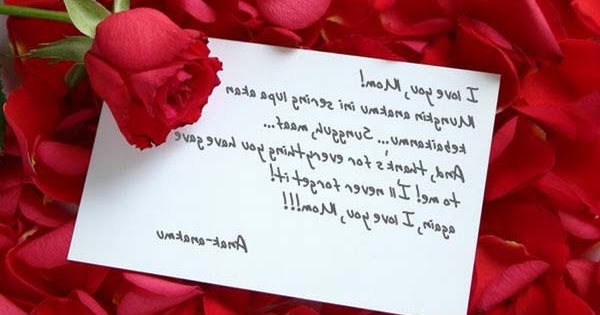 I love you, Mom!
Mungkin anakmu ini sering lupa akan
kebaikanmu... Sungguh, maaf...
And, thank's for everything you have gave
to me! I'll never forget it!
again, I love you, Mom!!!
Anak-anakmu